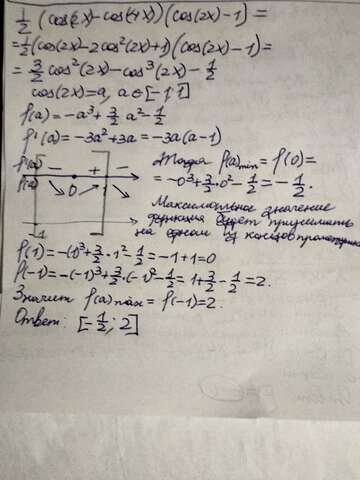 1/2 (cos(2x)-cos(4x))(cos(2x)-1)=
=1/2(cos(2x)-2cos²(2x)+1)(cos(2x)-1)=
= 3/2 cos²(2x)-cos³(2x)-1/2
cos(2x)=a, a∈[-1;1]
f(a)=-a³+3/2 a²-1/2
f'(a)=-3a²+3a=-3a(a-1)
f'(a) - + - Тогда f(a)min=f(0)=
f(a) 0 =-0³+3/2·0²-1/2=-1/2.
Максимальное значение
функция будет принимать
-1 на одном из концов промежутка
f(1)=-(1)³+3/2·1²-1/2=-1+1=0
f(-1)=-(-1)³+3/2·(-1)²-1/2=1+3/2-1/2=2.
Значит f(a)max=f(-1)=2.
Ответ: [-1/2; 2]